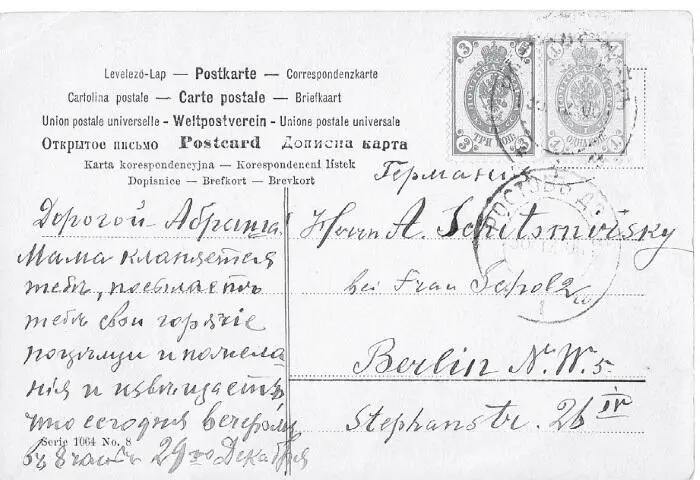 Levelező-Lap — Postkarte — Correspondenzkarte
Cartolina postale — Carte postale — Briefkaart
Union postale universelle - Weltpostverein - Unione postale universale
Открытое письмо Postcard Дописна карта
Karta korespondencyjna — Korespondencni listek
Dopisnice — Brefkort — Brevkort
3 3
ТРИ КОП.
3 3
1 1
ОДНА КОП.
1 1
Германия
РОСТОВЪ Д
Дорогой Абраша.
Мама кланяется
тебѣ, посылаетъ
тебѣ свои горячіе
поцѣлуи и пожела
нія и извѣщаетъ
что сегодня вечеромъ
въ 8 час. 29го Декабря
Serie 1064 No. 8
Herrn A. Schitomirsky
bei Frau Scholz
Berlin N.W.5
Stephanstr. 26 IV